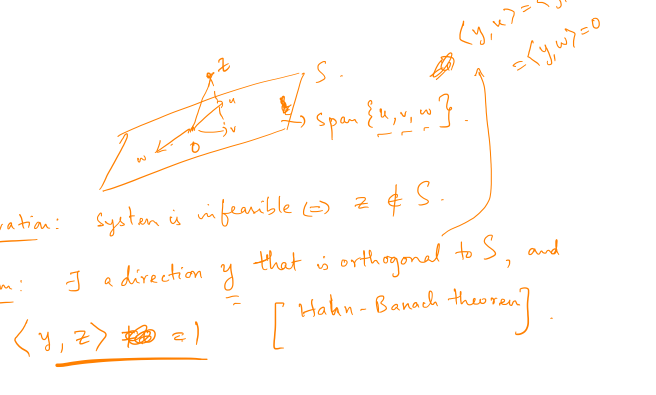 ⟨y, u⟩ = ⟨y,
= ⟨y, w⟩ = 0
z
S.
u
v
w
0
→ span {u, v, w}.
vation: System is infeasible ⇔ z ∉ S.
m: ∃ a direction y that is orthogonal to S, and
⟨y, z⟩ = 1 [Hahn-Banach theorem].